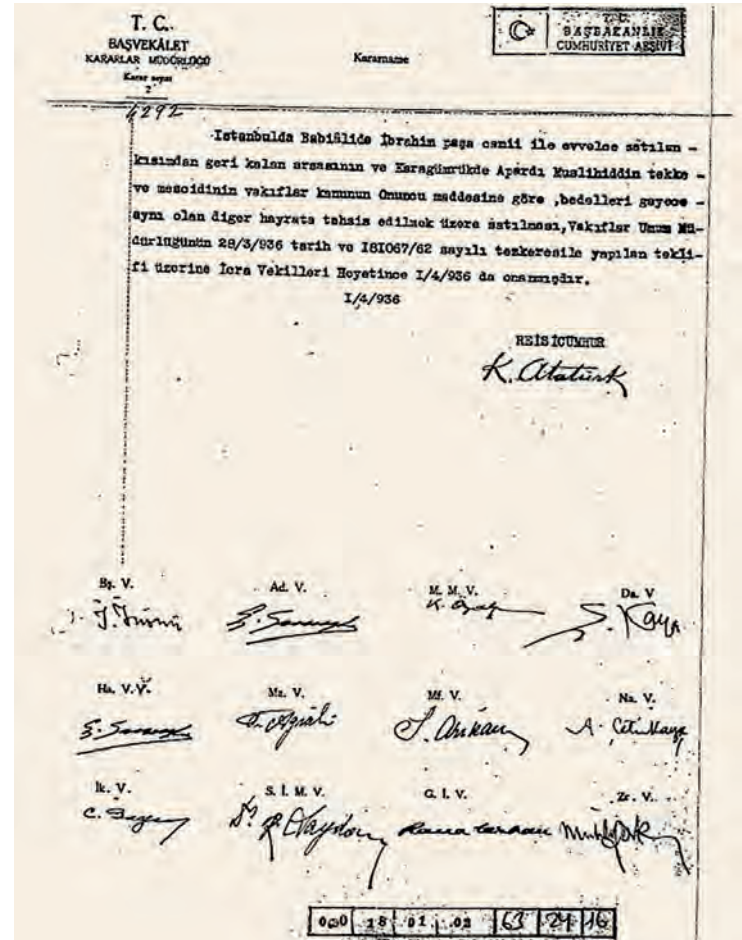 T. C.
BAŞVEKÂLET
KARARLAR MÜDÜRLÜĞÜ
Karar sayısı
2
4292
Kararname
T. C.
BAŞBAKANLIK
CUMHURİYET ARŞİVİ
Istanbulda Babiâlide İbrahim paşa camii ile evvelce satılan -
kısımdan geri kalan arsasının ve Karagümrükde Apardı Muslihiddin tekke -
ve mescidinin vakıflar kanunun Onuncu maddesine göre ,bedelleri gayece -
aynı olan diger hayrata tahsis edilmek üzere satılması,Vakıflar Umum Mü-
dürlüğünün 28/3/936 tarih ve I8I067/62 sayılı tezkeresile yapılan tekli-
fi üzerine İcra Vekilleri Heyetince I/4/936 da onanmışdır.
I/4/936
REİSİCÜMHUR
K. Atatürk
Bş. V. Ad. V. M. M. V. Da. V
İ. İnönü K. Özalp Ş. Kaya
Ha. V.V. Ma. V. Mf. V. Na. V.
S. Arıkan A. Çetinkaya
İk. V. S. İ. M. V. G. İ. V. Zr. V.
C. Bayar Rana Tarhan
000 18 01 02 63 24 16